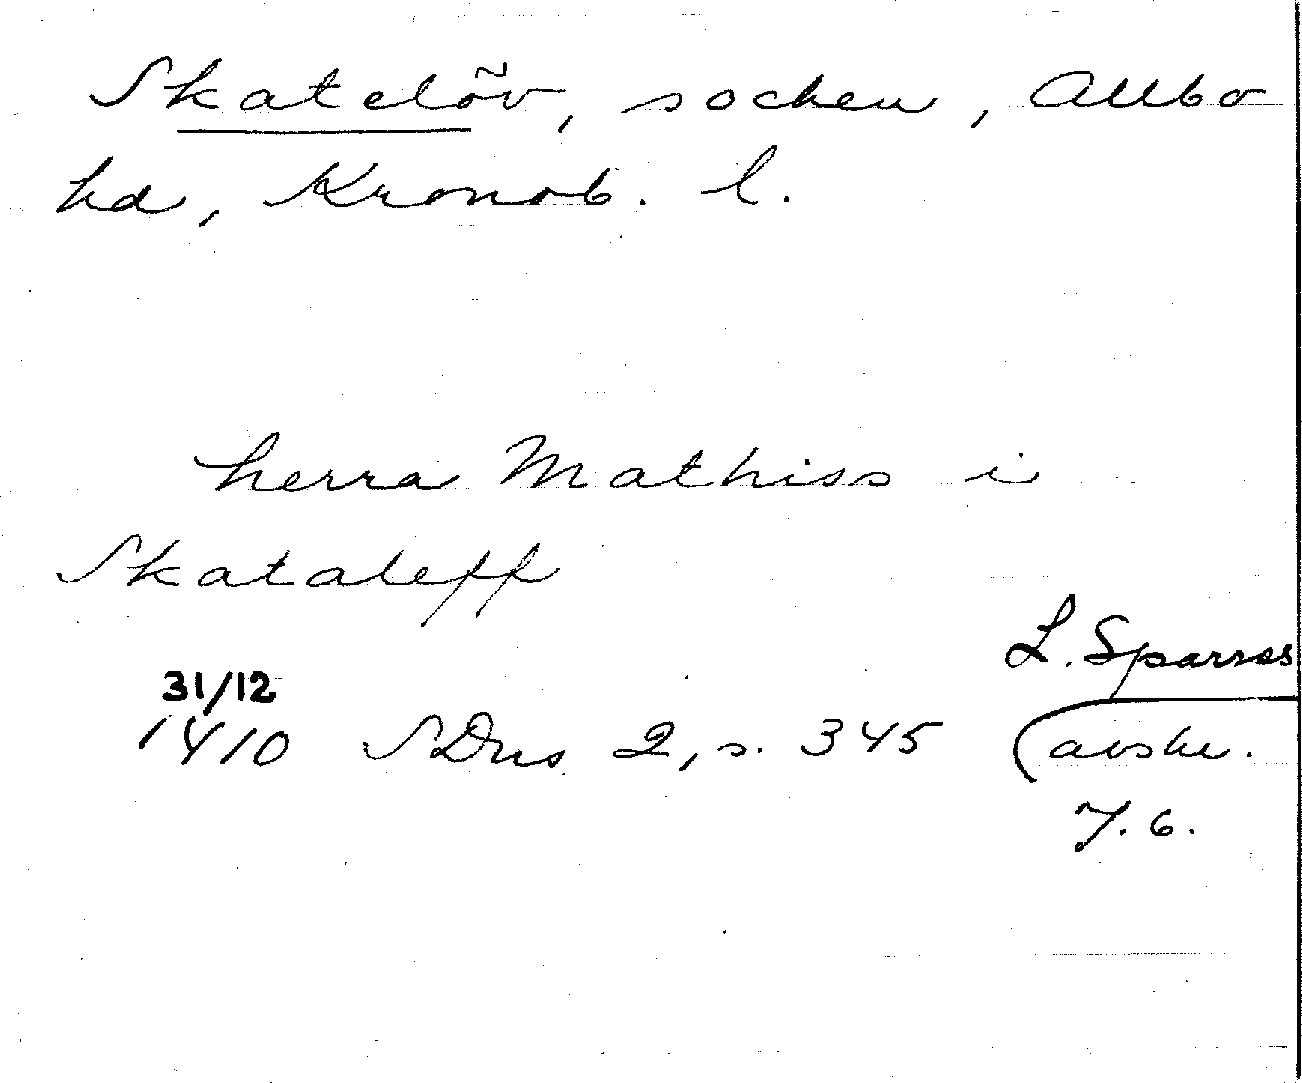 Skatelöv, socken, Allbo
hd, Kronob. l.
herra Mathiss i
Skataleff
L. Sparres
31/12
1410 SDns 2, s. 345 (avskr.
7.6.